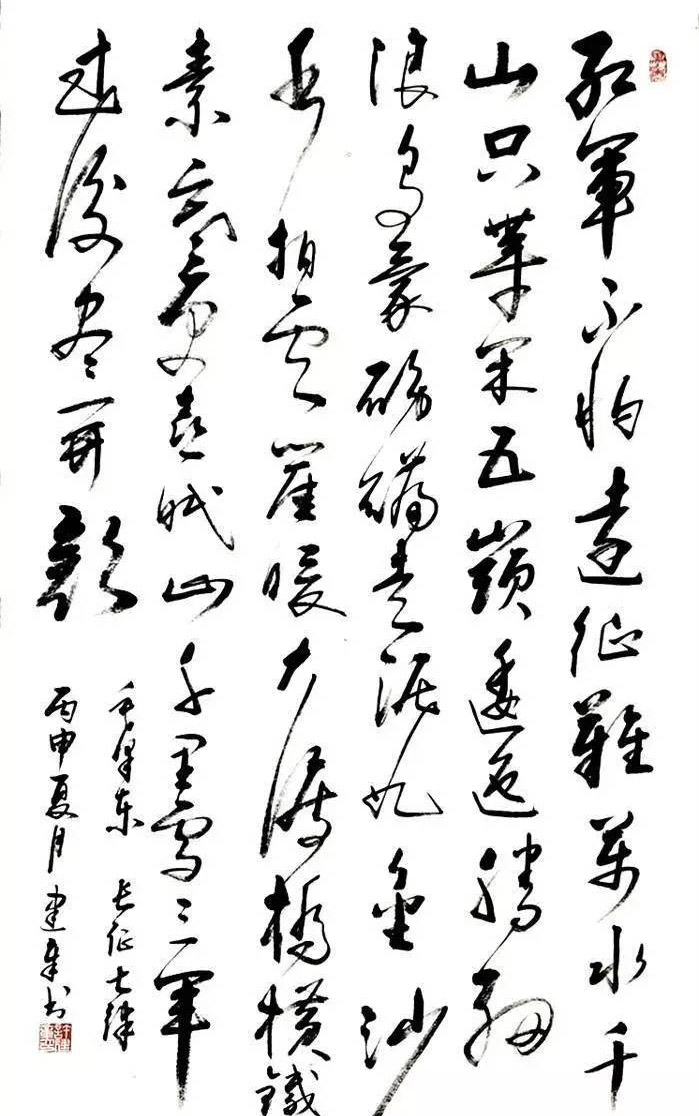 红軍不怕遠征難萬水千
山只等闲五嶺逶迤腾细
浪乌蒙磅礴走泥丸金沙
水拍雲崖暖大渡橋横鐵
索寒更喜岷山千里雪三軍
过後尽開颜
毛泽东 长征七律
丙申夏月建书